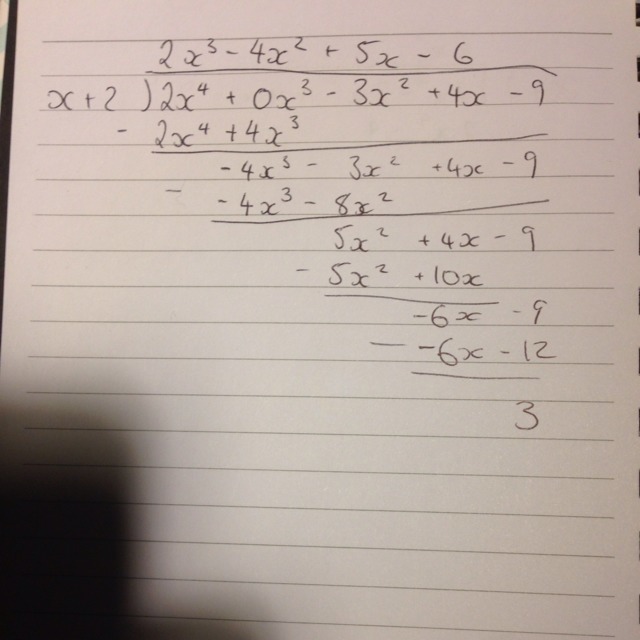 2x³ - 4x² + 5x - 6
x + 2 ) 2x⁴ + 0x³ - 3x² + 4x - 9
- 2x⁴ + 4x³
- 4x³ - 3x² + 4x - 9
- - 4x³ - 8x²
5x² + 4x - 9
- 5x² + 10x
- 6x - 9
- - 6x - 12
3